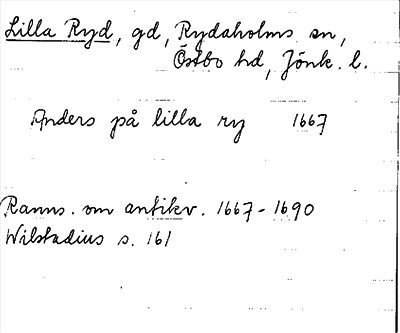 Lilla Ryd, gd, Rydaholms sn,
Östbo hd, Jönk. l.
Anders på lilla ry 1667
Ranns. om antikv. 1667-1690
Wilstadius s. 161